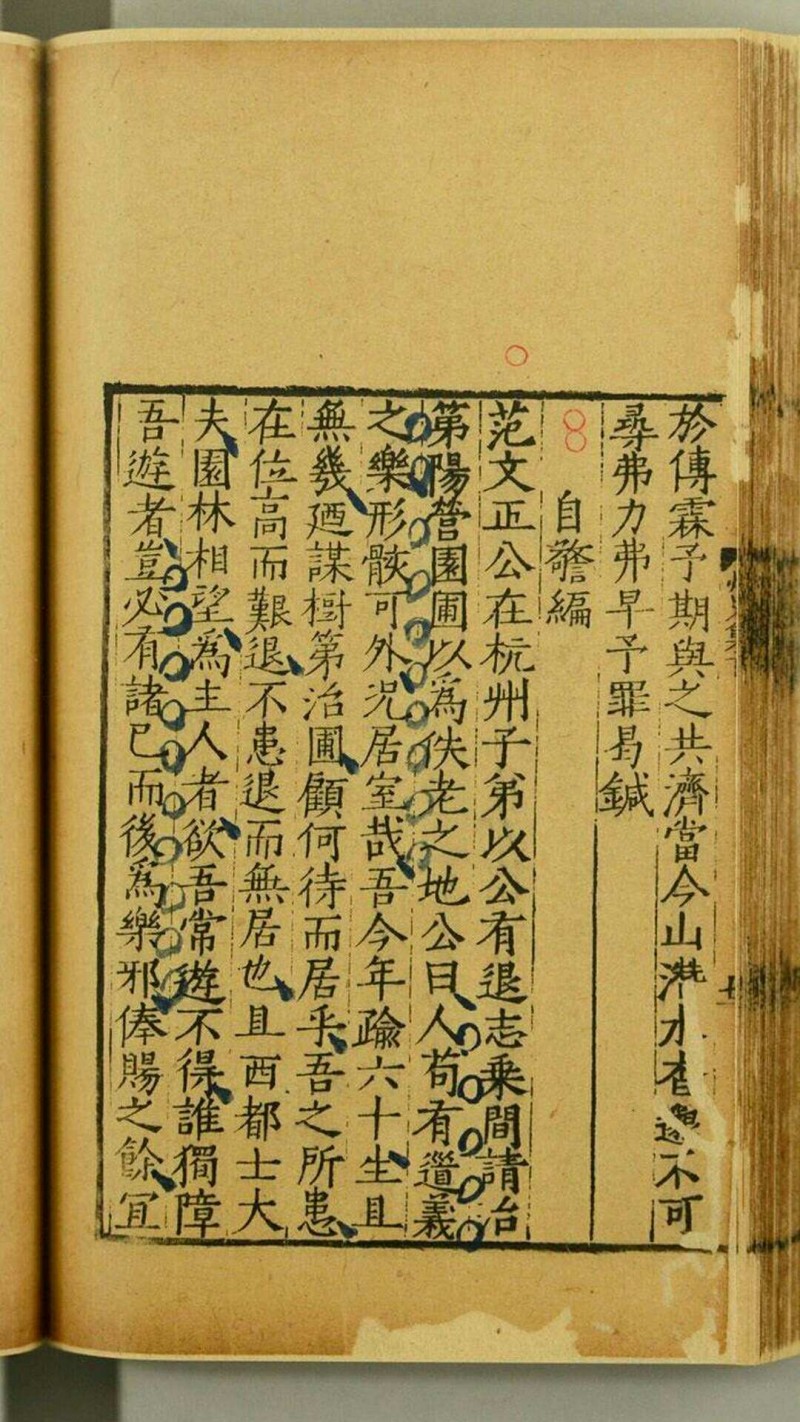 於傅霖予期與之共濟當今山水不可
尋弗力弗早予罪曷鍼
自警編
范文正公在杭州子弟以公有退志乗間請治
第陽營園圃以爲佚老之地公曰人苟有道義
之樂形骸可外况居室哉吾今年踰六十生且
無幾廼謀樹第治圃顧何待而居乎吾之所患
在位高而艱退不患退而無居也且西都士大
夫園林相望爲主人者欲吾常遊不得誰獨障
吾遊者豈必有諸已而後爲樂邪俸賜之餘冝